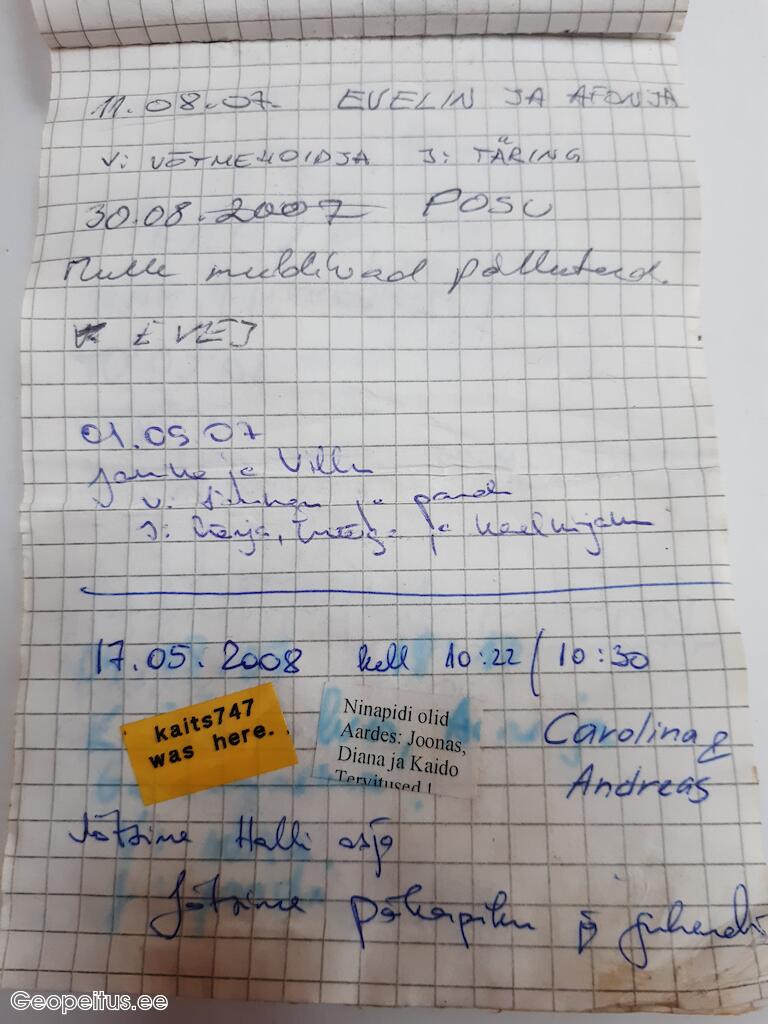 11.08.07. EVELIN JA AFONJA
V: VÕTMEHOIDJA J: TÄRING
30.08.2007 POSU
Mulle meeldivad põlluteed.
EVEJ
01.09 07
Janne ja Villu
V: ja
J: ja
17.05.2008 kell 10:22 / 10:30
kaits747
was here.
Ninapidi olid
Aardes: Joonas,
Diana ja Kaido
Tervitused!
Carolina &
Andreas
Võtsime Halli asja
Jätsime päkapiku
Geopeitus.ee